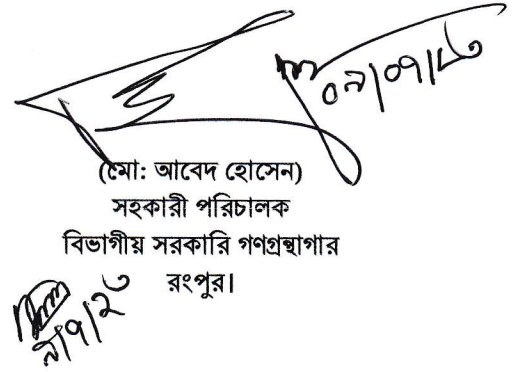 ০৯/০৭/২৩
(মো: আবেদ হোসেন)
সহকারী পরিচালক
বিভাগীয় সরকারি গণগ্রন্থাগার
রংপুর।
৯/৭/২৩